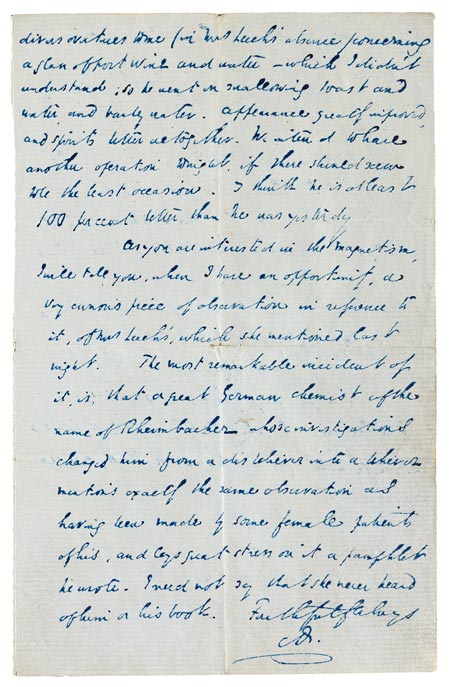 divers overtures to me (in Mrs Leech's absence) concerning
a glass of port wine and water – which I didn't
understand; so he went on swallowing toast and
water, and barley water. Appearance greatly improved,
and spirits better altogether. We intend to have
another operation tonight, if there should seem
to be the least occasion. I think he is at least
100 per cent better than he was yesterday
As you are interested in the magnetism,
I will tell you, when I have an opportunity, a
very curious piece of observation in reference to
it, of Mrs Leech's, which she mentioned last
night. The most remarkable incident of
it, is, that a great German chemist of the
name of Rheinbacher whose investigations
changed him from a disbeliever into a believer
mentions exactly the same observation as
having been made by some female patients
of his, and lays great stress on it a pamphlet
he wrote. I need not say that she never heard
of him or his book. Faithfully always
CD.